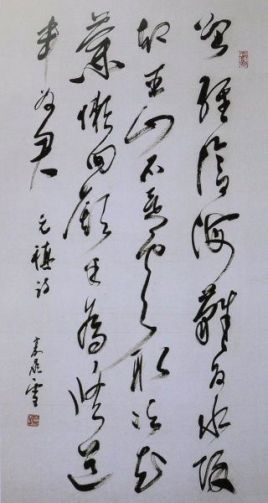 曾經滄海難為水除
却巫山不是雲取次花
叢懒回顧半修道
半为君
元稹诗